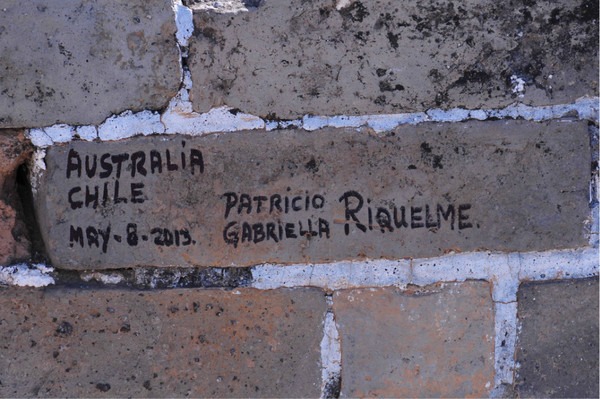 AUSTRALIA
CHILE
MAY-8-2013.
PATRICIO
GABRIELLA RIQUELME.